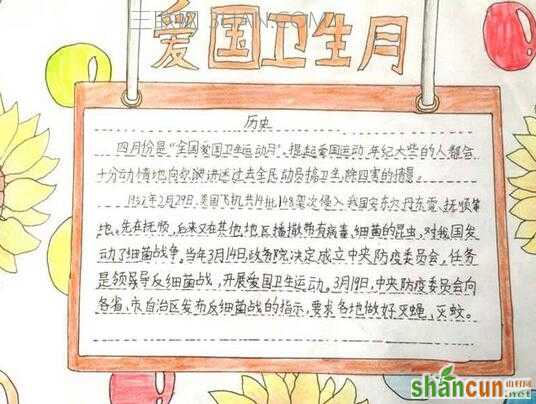 爱国卫生月
历史
四月份是“全国爱国卫生运动月”，提起爱国运动，年纪大些的人都会
十分动情地向你演讲述过去全民动员搞卫生，除四害的情景。
1952年2月29日，美国飞机共14批148架次侵入我国安东、丹东、抚顺等
地，先在抚顺，后来又在其他地区播撒带有病毒、细菌的昆虫，对我国发
动了细菌战争。当年3月14日，政务院决定成立中央防疫委员会，任务
是领导反细菌战，开展爱国卫生运动。3月19日，中央防疫委员会向
各省、市、自治区发布反细菌战的指示，要求各地做好灭蝇、灭蚊。
shancun
山村网
.net